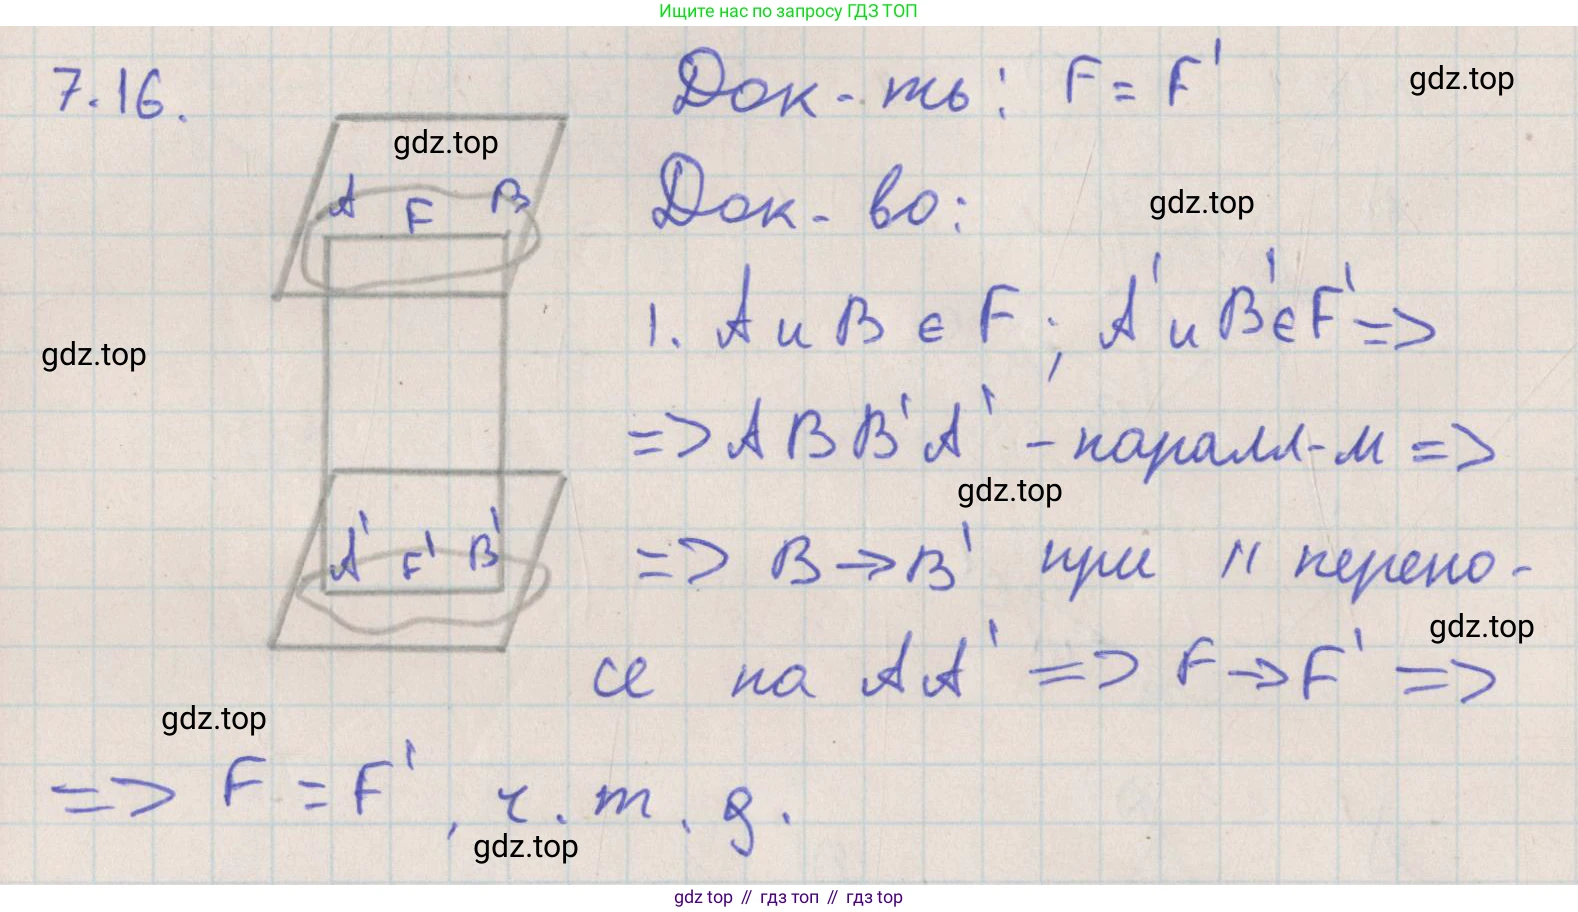 Ищите нас по запросу ГДЗ ТОП
7.16.
Док-ть: F = F'
gdz.top
gdz.top
A F B
Док-во:
gdz.top
1. A и B ∈ F; A' и B' ∈ F' =>
gdz.top
=> A B B' A' - паралл-м =>
gdz.top
A' F' B'
=> B → B' при || перено-
gdz.top
се на A A' => F → F' =>
gdz.top
=> F = F', ч.т.д.
gdz.top
gdz top // гдз топ // гдз top